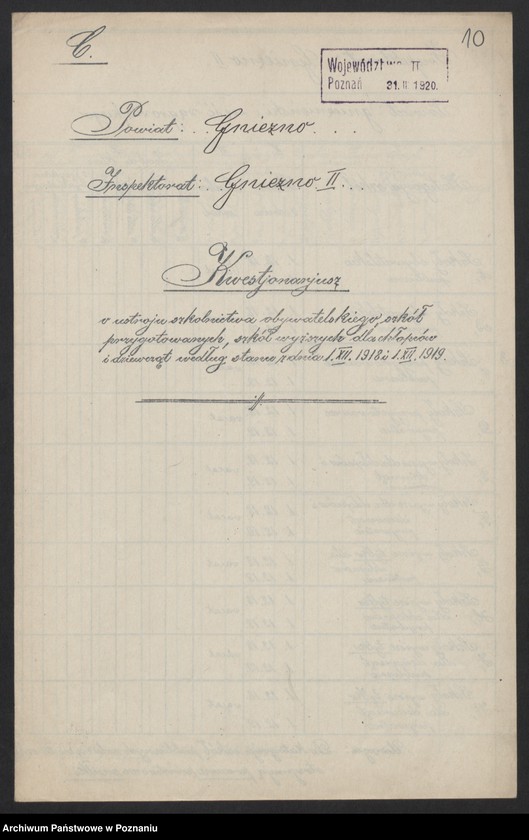 C.
10
Województwo II
Poznań 31. II 1920.
Powiat: . . Gniezno . . .
Inspektorat: . . Gniezno II . . .
Kwestjonarjusz
o ustroju szkolnictwa obywatelskiego, szkół
przygotowanych, szkół wyższych dla chłopców
i dziewcząt według stanu z dnia 1. XII. 1918 i 1. XII. 1919.
Archiwum Państwowe w Poznaniu